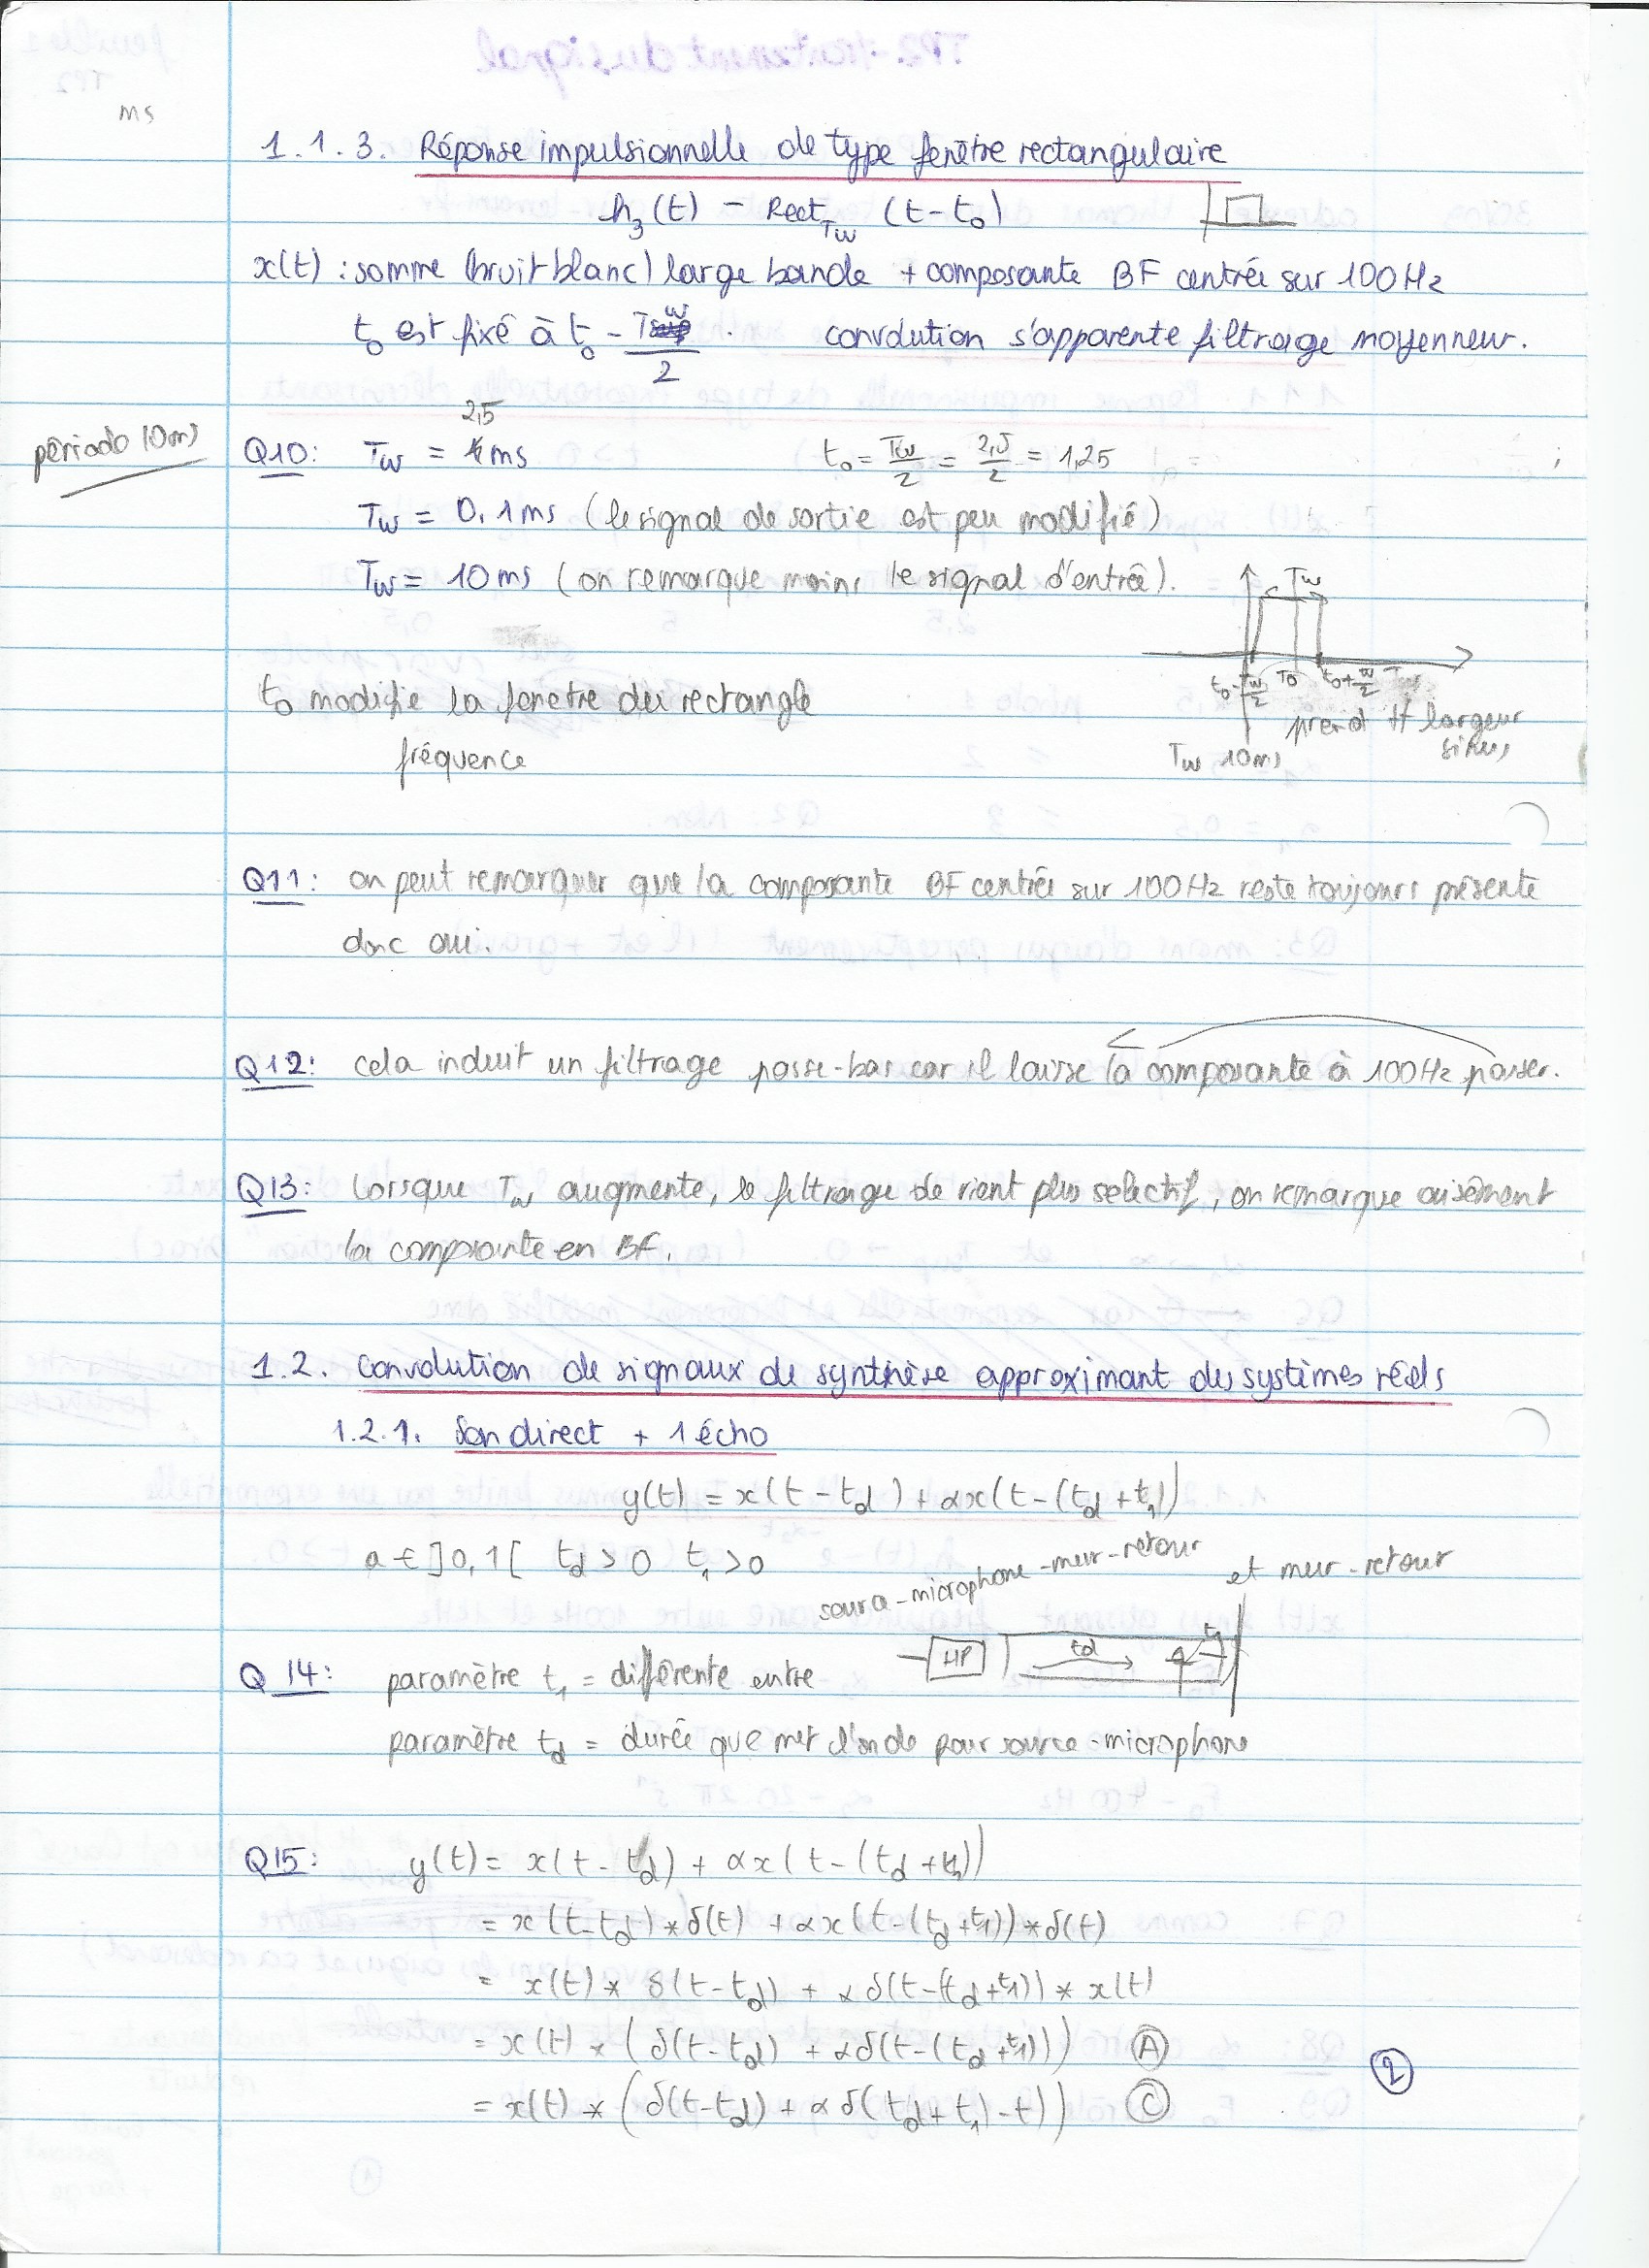 ms
1.1.3. Réponse impulsionnelle de type fenêtre rectangulaire
h₃(t) = Rect_Tw (t-t₀)
x(t) : somme (bruit blanc) large bande + composante BF centrée sur 100Hz
t₀ est fixé à t₀ = Tw/2 . convolution s'apparente filtrage moyenneur.
période 10ms
2,5
Q10: Tw = ms t₀ = Tw/2 = 2,5/2 = 1,25
Tw = 0,1ms (le signal de sortie est peu modifié)
Tw = 10ms (on remarque moins le signal d'entrée).
Tw
t₀-Tw/2 T0 t₀+Tw/2 Tw
t₀ modifie la fenetre du rectangle
prend # largeur
sinus
fréquence
Tw 10ms
Q11: on peut remarquer que la composante BF centrée sur 100Hz reste toujours présente
donc oui.
Q12: cela induit un filtrage passe-bas car il laisse la composante à 100Hz passer.
Q13: Lorsque Tw augmente, le filtrage de vient plus selectif, on remarque aisément
la composante en BF.
1.2. Convolution de signaux de synthèse approximant des systèmes réels
1.2.1. Son direct + 1 écho
y(t) = x(t-td) + αx(t-(td+t₁)
a ∈ ]0,1[ td > 0 t₁ > 0
source-microphone-mur-retour et mur-retour
HP td t₁
Q14: paramètre t₁ = différente entre
paramètre td = durée que met l'onde pour source-microphone
Q15: y(t) = x(t-td) + αx(t-(td+t₁))
= x(t-td) * δ(t) + αx(t-(td+t1)) * δ(t)
= x(t) * δ(t-td) + αδ(t-(td+t1)) * x(t)
= x(t) * (δ(t-td) + αδ(t-(td+t1))) Ⓐ
= x(t) * (δ(t-td) + αδ(td+t₁)-t)) Ⓒ
②